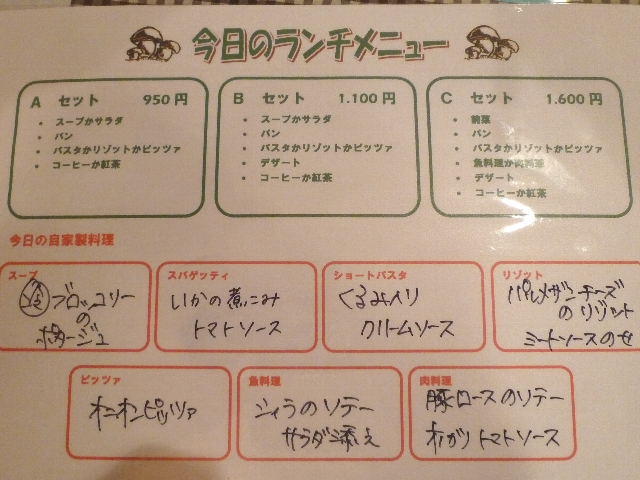 今日のランチメニュー
A セット 950円
・ スープかサラダ
・ パン
・ パスタかリゾットかピッツァ
・ コーヒーか紅茶
B セット 1.100円
・ スープかサラダ
・ パン
・ パスタかリゾットかピッツァ
・ デザート
・ コーヒーか紅茶
C セット 1.600円
・ 前菜
・ パン
・ パスタかリゾットかピッツァ
・ 魚料理か肉料理
・ デザート
・ コーヒーか紅茶
今日の自家製料理
スープ
ブロッコリー
の
ポタージュ
スパゲッティ
いかの煮こみ
トマトソース
ショートパスタ
くるみ入り
クリームソース
リゾット
パルメザンチーズ
のリゾット
ミートソースのせ
ピッツァ
オニオンピッツァ
魚料理
シイラのソテー
サラダ添え
肉料理
豚ロースのソテー
トマトソース